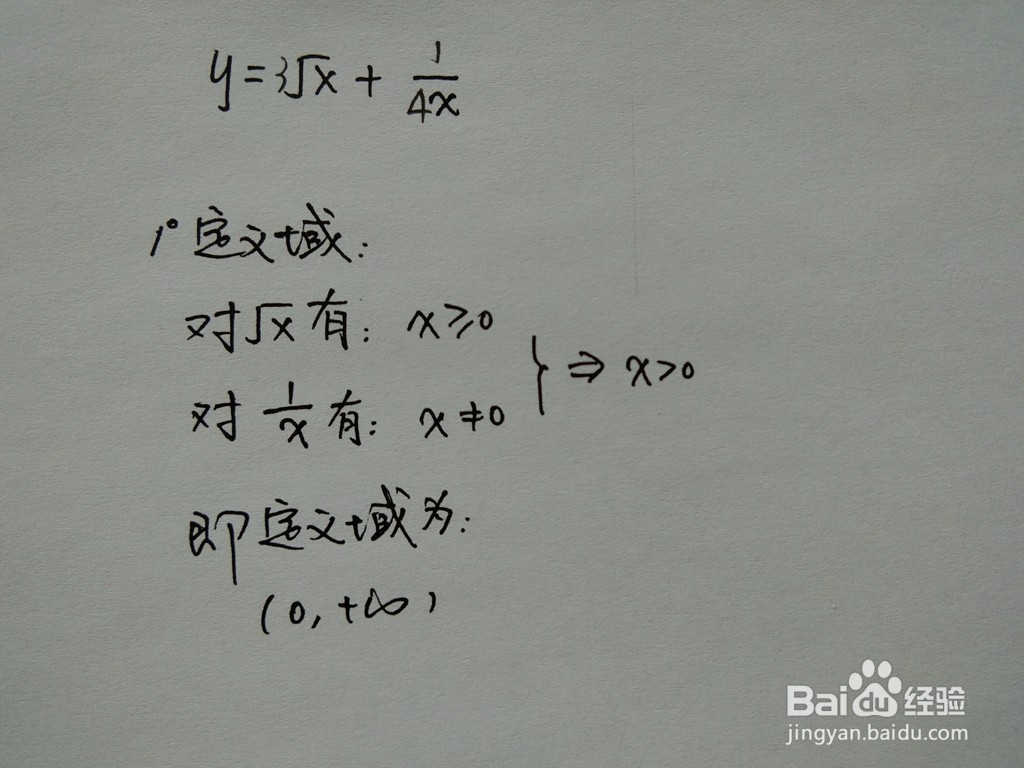 y=3√x + 1/4x
1° 定义域:
对√x 有: x≥0
对 1/x 有: x≠0
} ⇒ x>0
即定义域为:
(0, +∞)
Baidu 经验
jingyan.baidu.com